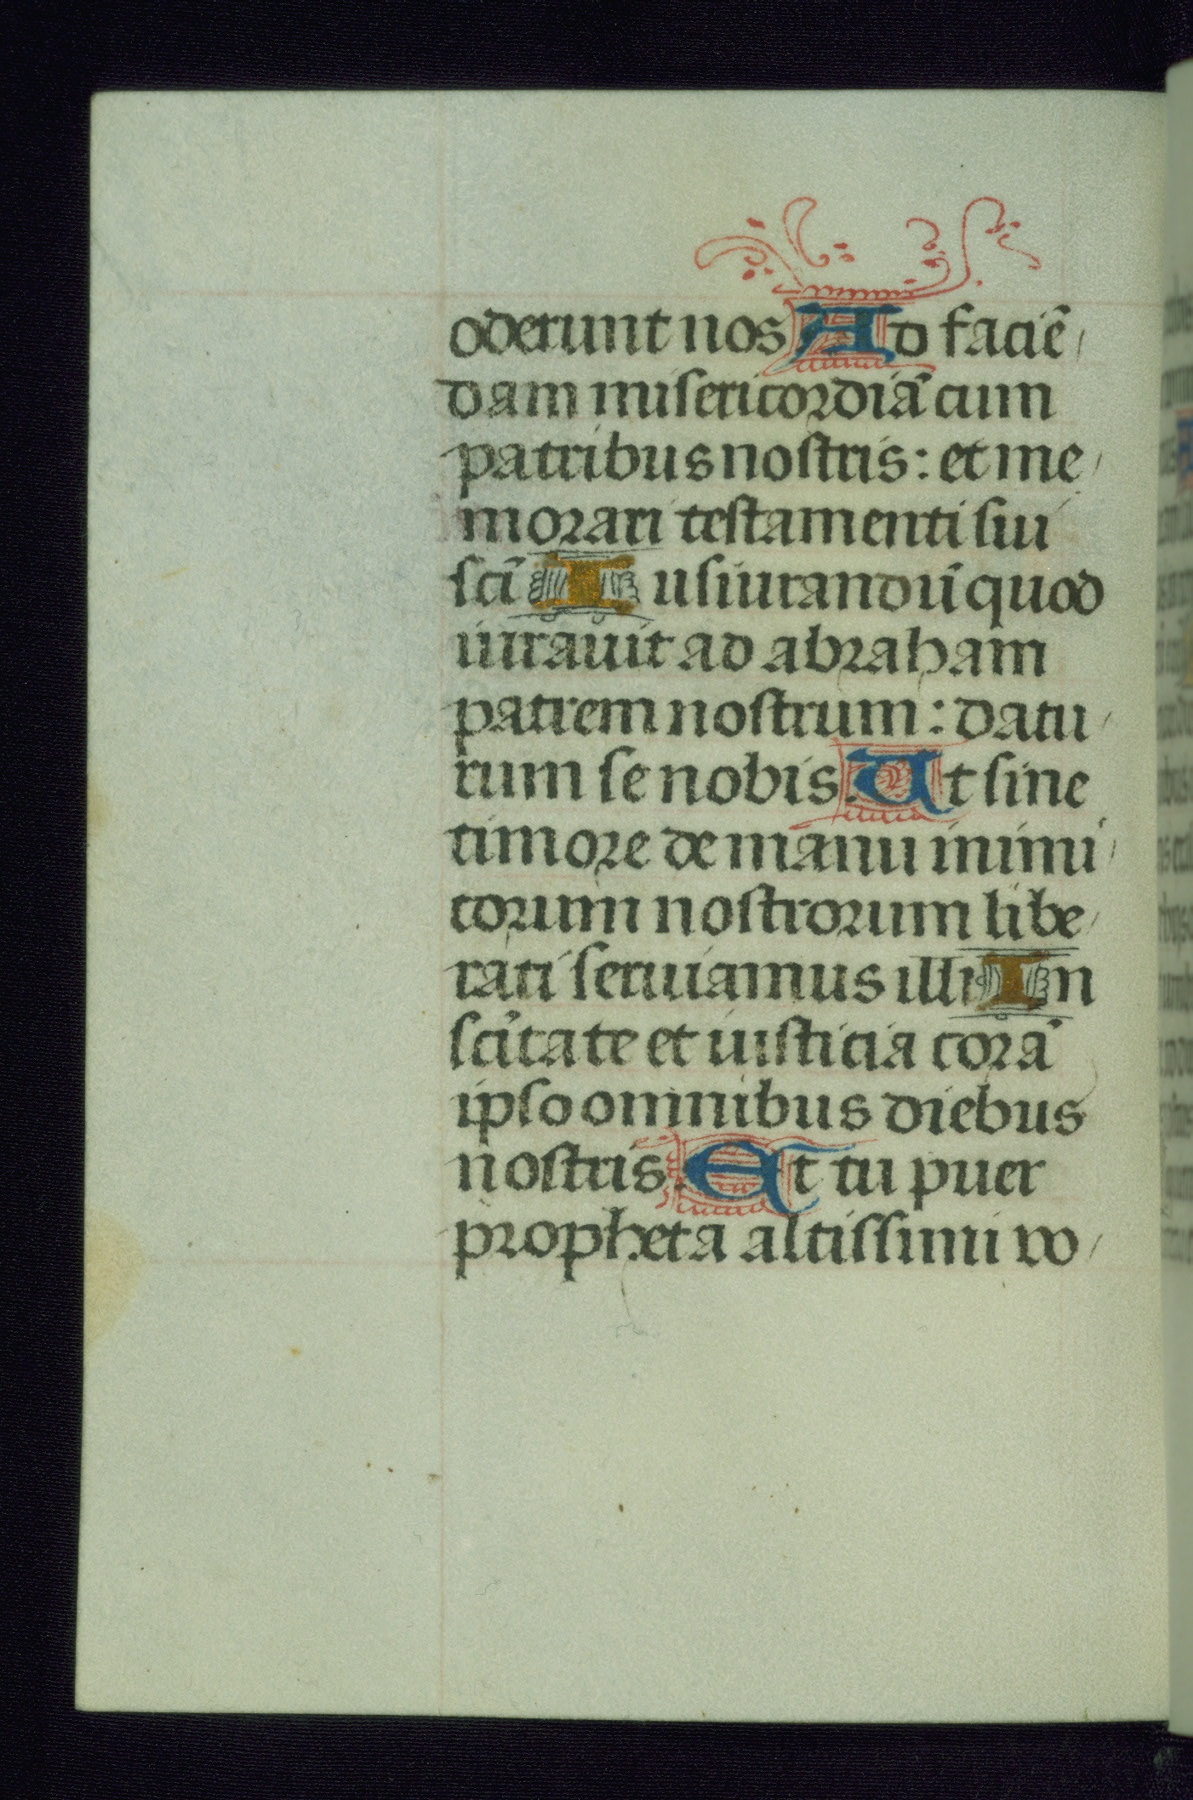 oderunt nos Ad faciē
dam misericordiā cum
patribus nostris: et me
morari testamenti sui
scī Iusiurandū quod
iurauit ad abraham
patrem nostrum: datu
rum se nobis. Ut sine
timore de manu inimi
corum nostrorum libe
rati seruiamus illi In
scītate et iusticia corā
ipso omnibus diebus
nostris. Et tu puer
propheta altissimi vo